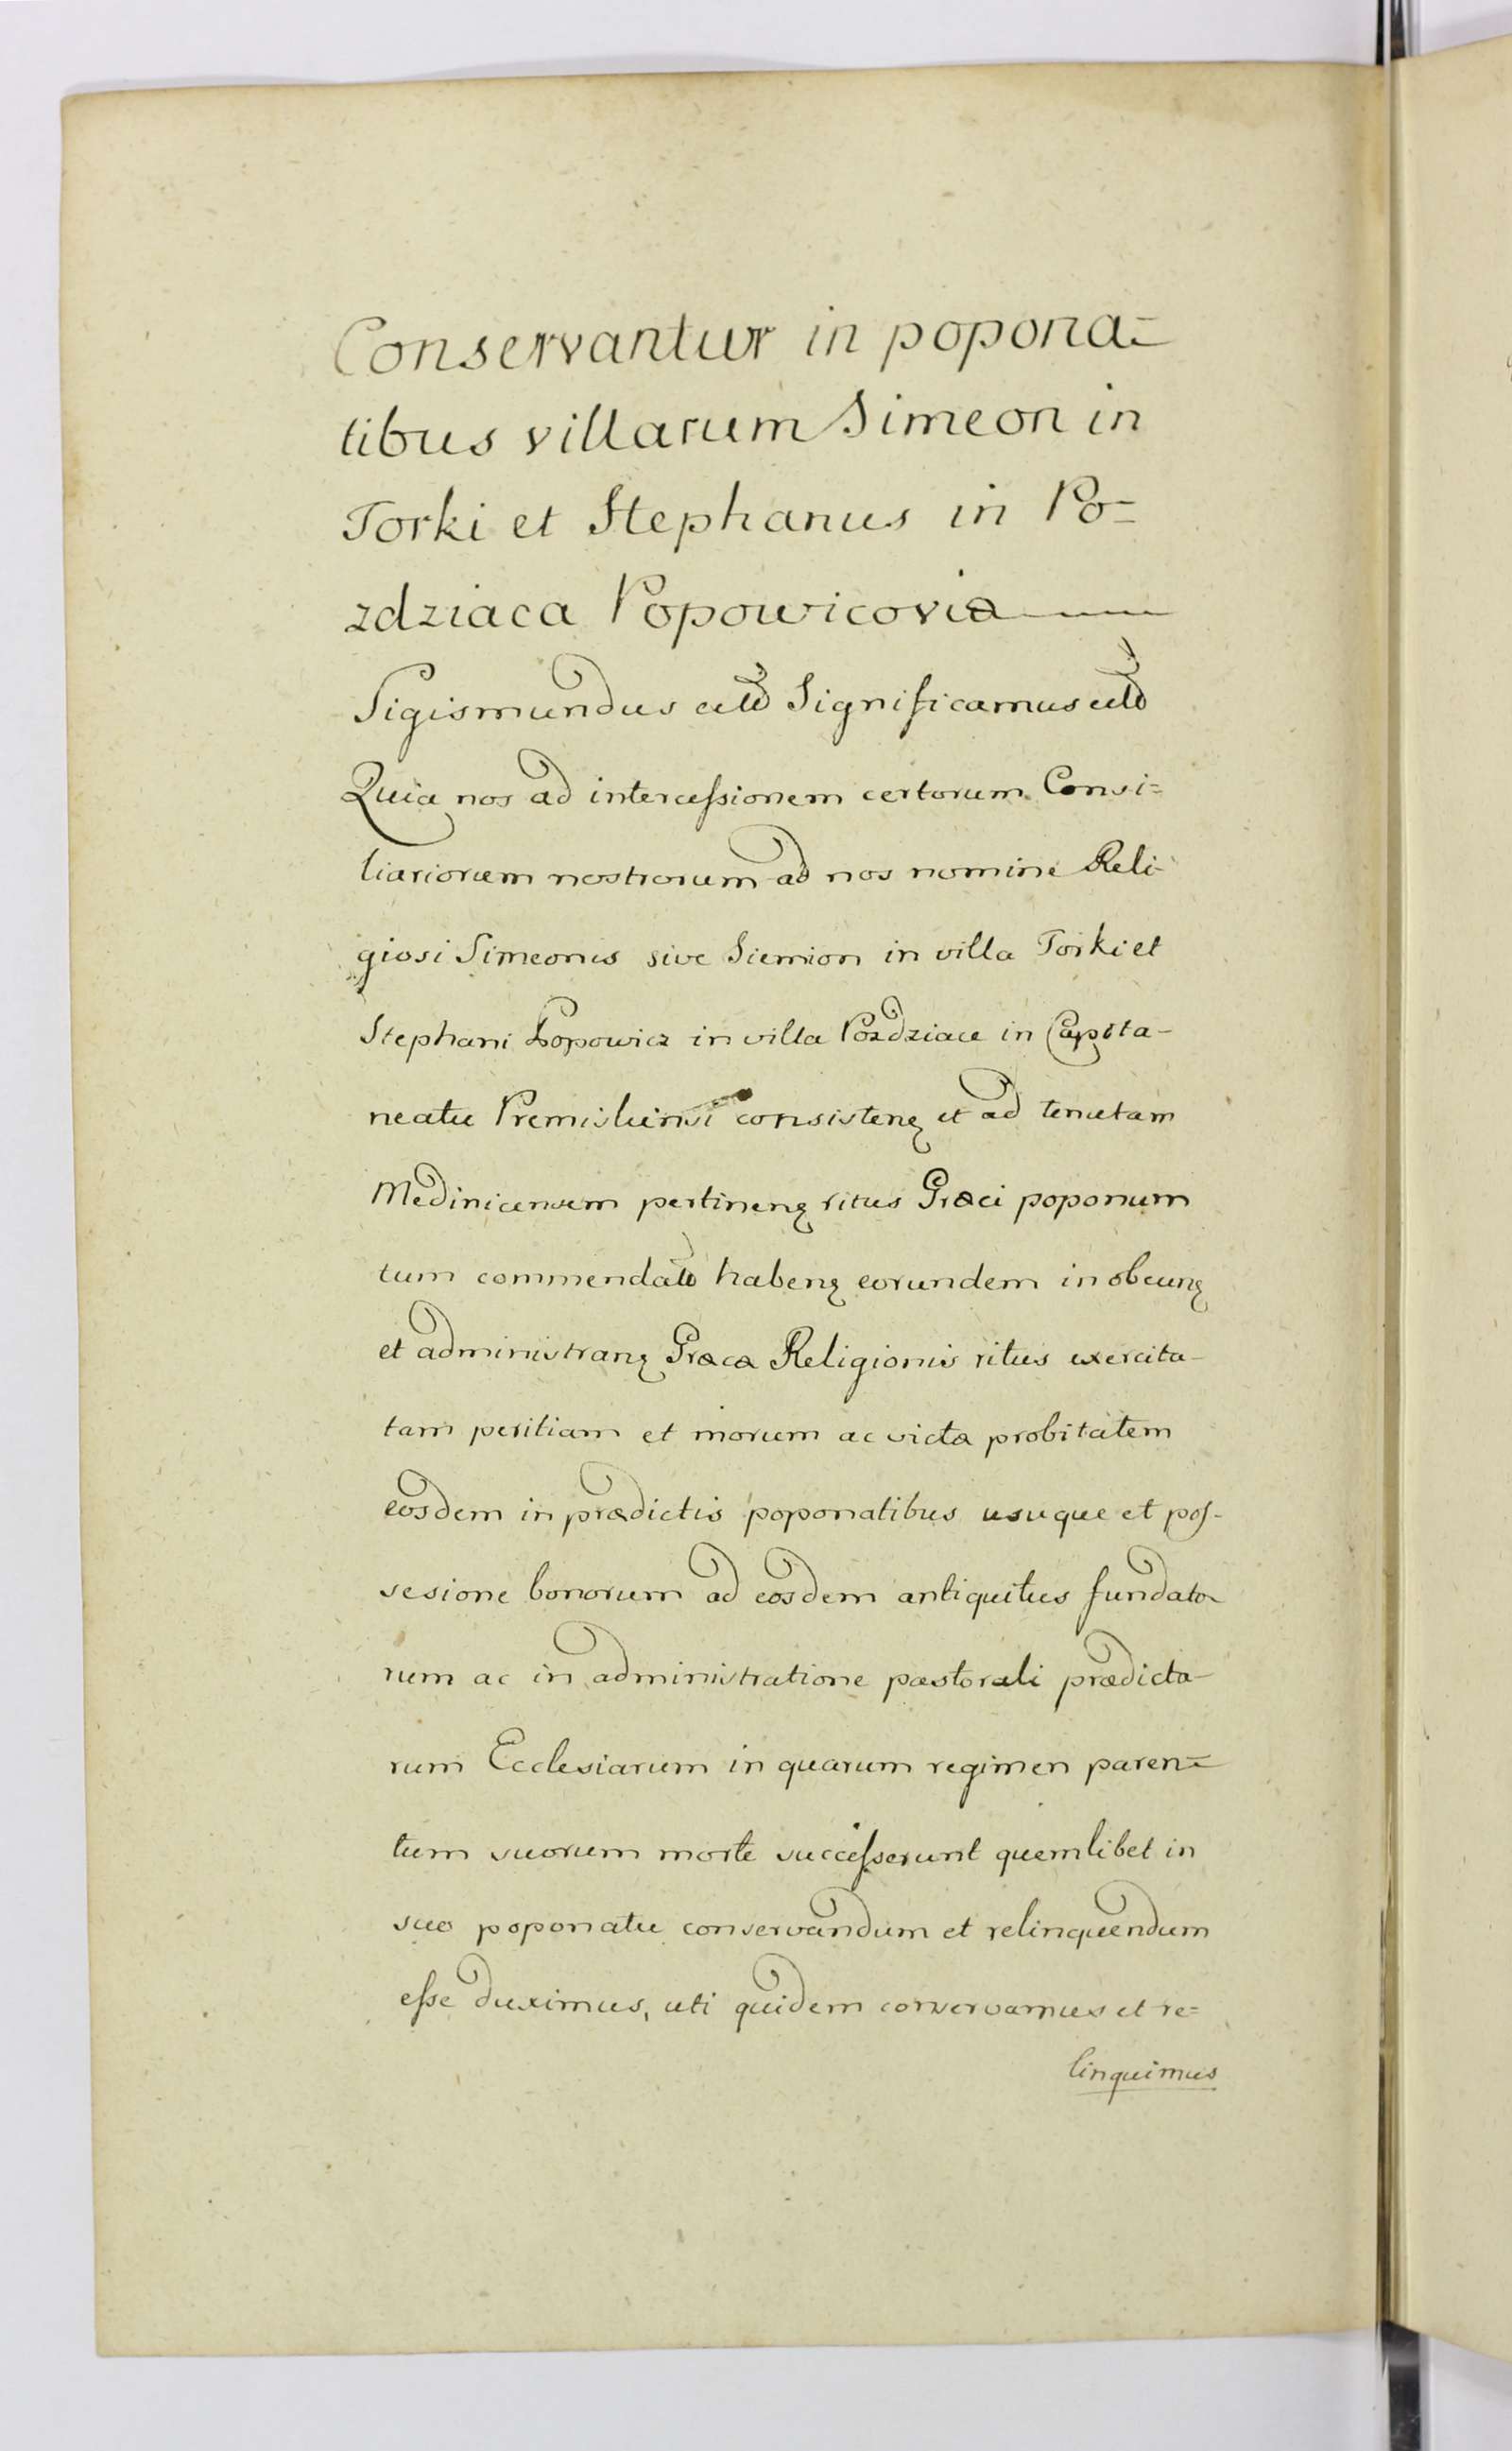 Conservantur in popona=
tibus villarum Simeon in
Torki et Stephanus in Po=
zdziaca Popowicovia
Sigismundus etc Significamus etc
Quia nos ad intercessionem certorum Consi=
liariorum nostrorum ad nos nomine Reli-
giosi Simeonis sive Siemion in villa Torki et
Stephani Popowicz in villa Pozdziace in Capita-
neatu Premisliensi consisten et ad tenutam
Medinicensem pertinen ritus Græci poponum
tum commendatt haben eorundem in obeun
et administran Græcæ Religionis ritus exercita-
tam peritiam et morum ac victæ probitatem
eosdem in prædictis poponatibus usuque et pos-
sesione bonorum ad eosdem antiquitus fundato-
rum ac in administratione pastorali prædicta-
rum Ecclesiarum in quarum regimen paren=
tum suorum morte successerunt quemlibet in
suo poponatu conservandum et relinquendum
esse duximus, uti quidem conservamus et re=
linquimus